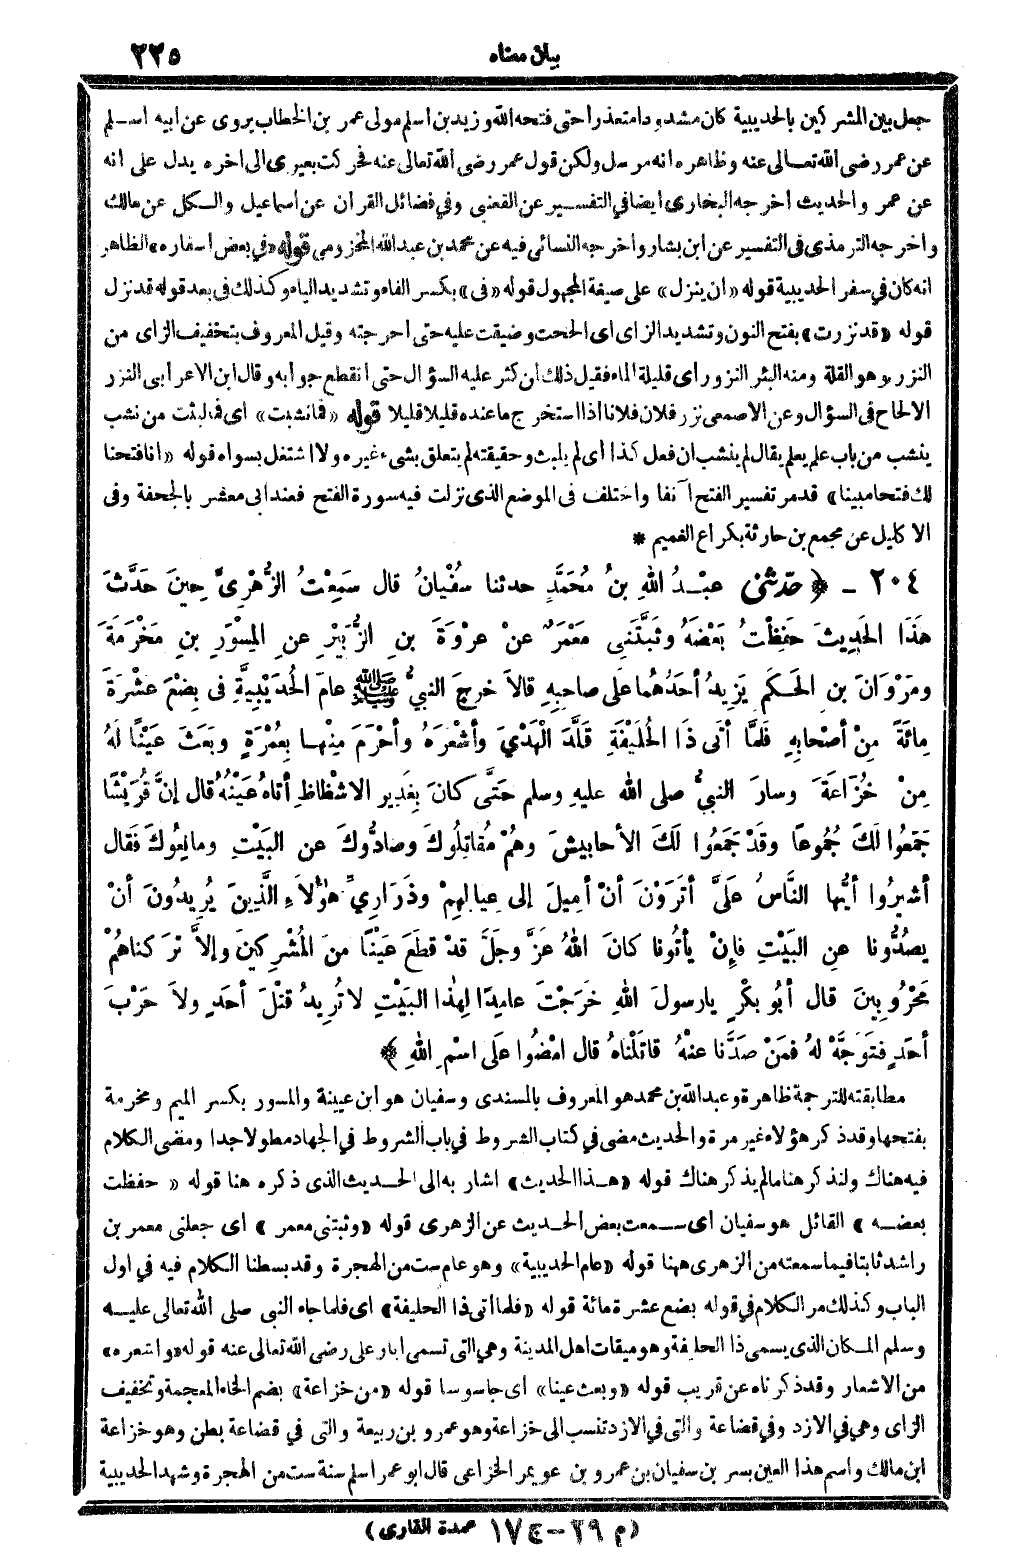 بيان معناه ٢٢٥
جعل بين المشركين بالحديبية كان مشدودا متعذرا حتى فتحه الله وزيد بن اسلم مولى عمر بن الخطاب يروى عن ابيه اسلم
عن عمر رضى الله تعالى عنه وظاهره انه مرسل ولكن قول عمر رضى الله تعالى عنه فحركت بعيرى الى اخره يدل على انه
عن عمر والحديث أخرجه البخارى ايضا فى التفسير عن القعنبى وفى فضائل القرآن عن اسماعيل والكل عن مالك
واخرجه الترمذى فى التفسير عن ابن بشار واخرجه النسائى فيه عن محمد بن عبدالله المخزومى قوله «فى بعض اسفاره» الظاهر
انه كان فى سفر الحديبية قوله «ان ينزل» على صيغة المجهول قوله «فى» بكسر الفاء وتشديد الياء وكذلك فى بعد قوله قد نزل
قوله «قد نزرت» بفتح النون وتشديد الزاى اى الححت وضيقت عليه حتى احرجته وقيل المعروف بتخفيف الزاى من
النزر وهو القلة ومنه البئر النزور أى قليلة الماء فقيل ذلك ان كثر عليه السؤال حتى انقطع جوابه وقال ابن الاعرابى النزر
الالحاح فى السؤال وعن الاصمعى نزر فلان فلانا اذا استخرج ما عنده قليلا قليلا قوله «فما نشبت» اى فما لبثت من نشب
ينشب من باب علم يعلم يقال لم ينشب ان فعل كذا أى لم يلبث وحقيقته لم يتعلق بشىء غيره ولا اشتغل بسواه قوله «انا فتحنا
لك فتحا مبينا» قد مر تفسير الفتح آنفا واختلف فى الموضع الذى نزلت فيه سورة الفتح فعند ابى معشر بالجحفة وفى
الاكليل عن مجمع بن حارثة بكراع الغميم *
٢٠٤ - ﴿ حدّثنى عبْدُ اللهِ بنُ مُحَمَّدٍ حدثنا سُفْيانُ قال سَمِعْتُ الزُّهْرِىَّ حِينَ حَدَّثَ
هٰذَا الحَدِيثَ حَفِظْتُ بَعْضَهُ وثَبَّتَنِى مَعْمَرٌ عنْ عرْوَةَ بنِ الزُّبَيْرِ عنِ المِسْوَرِ بنِ مَخْرَمَةَ
ومَرْوَانَ بنِ الحَكَمِ يَزِيدُ أحَدُهُما على صاحبِهِ قالاَ خرجَ النبيُّ ﷺ عامَ الحُدَيْبِيَةِ فى بِضْعَ عشْرَةَ
مِائَةً مِنْ أصْحابِهِ فَلَمَّا أتى ذَا الحُلَيْفَةِ قَلَّدَ الْهَدْىَ وأشْعَرَهُ وأحْرَمَ مِنْها بِعُمْرَةٍ وبَعَثَ عَيْنًا لَهُ
مِنْ خُزَاعَةَ وسارَ النبيُّ صلى الله عليهِ وسلم حَتَّى كانَ بِغَدِيرِ الاشْظاظِ أتاهُ عَيْنُهُ قال إنَّ قُرَيْشًا
جَمَعُوا لَكَ جُمُوعًا وقَدْ جَمَعُوا لَكَ الأحابِيشَ وهُمْ مُقاتِلُوكَ وصادُّوكَ عنِ البَيْتِ ومانِعُوكَ فَقال
أشِيرُوا أيُّها النَّاسُ عَلَىَّ أتَرَوْنَ أنْ أمِيلَ إلى عِيالِهِمْ وذَرَارِىِّ هٰؤُلاَءِ الَّذِينَ يُرِيدُونَ أنْ
يصُدُّونا عنِ البَيْتِ فإِنْ يأتُونا كانَ اللهُ عزَّ وجَلَّ قدْ قطَعَ عَيْنًا منَ المُشْرِكِينَ وإلاَّ تَركناهُمْ
مَحْرُوبِينَ قال أبُو بكْرٍ يارسولَ اللهِ خَرَجْتَ عامِدًا لِهٰذَا البَيْتِ لاتُرِيدُ قتْلَ أحَدٍ ولاَ حَرْبَ
أحَدٍ فتَوَجَّهْ لهُ فمَنْ صَدَّنا عنْهُ قاتَلْناهُ قال امْضُوا عَلى اسْمِ اللهِ ﴾
مطابقته للترجمة ظاهرة وعبدالله بن محمد هو المعروف بالمسندى وسفيان هو ابن عيينة والمسور بكسر الميم ومخرمة
بفتحها وقد ذكر هؤلاء غير مرة والحديث مضى فى كتاب الشروط فى باب الشروط فى الجهاد مطولا جدا ومضى الكلام
فيه هناك ولنذكر هنا مالم يذكر هناك قوله «هذا الحديث» اشار به الى الحديث الذى ذكره هنا قوله «حفظت
بعضه» القائل هو سفيان أى سمعت بعض الحديث عن الزهرى قوله «وثبتنى معمر» اى جعلنى معمر بن
راشد ثابتا فيما سمعته من الزهرى ههنا قوله «عام الحديبية» وهو عام ست من الهجرة وقد بسطنا الكلام فيه فى اول
الباب وكذلك مر الكلام فى قوله بضع عشرة مائة قوله «فلما اتى ذا الحليفة» اى فلما جاء النبى صلى الله تعالى عليه
وسلم المكان الذى يسمى ذا الحليفة وهو ميقات اهل المدينة وهى التى تسمى ابار على رضى الله تعالى عنه قوله «واشعره»
من الاشعار وقد ذكرناه عن قريب قوله «وبعث عينا» اى جاسوسا قوله «من خزاعة» بضم الخاء المعجمة وتخفيف
الزاى وهى فى الازد وفى قضاعة والتى فى الازد تنسب الى خزاعة وهو عمرو بن ربيعة والتى فى قضاعة بطن وهو خزاعة
ابن مالك واسم هذا العين بسر بن سفيان بن عمرو بن عويمر الخزاعى قال ابو عمر اسلم سنة ست من الهجرة وشهد الحديبية
(م ٢٩ - ج ١٧ عمدة القارى)